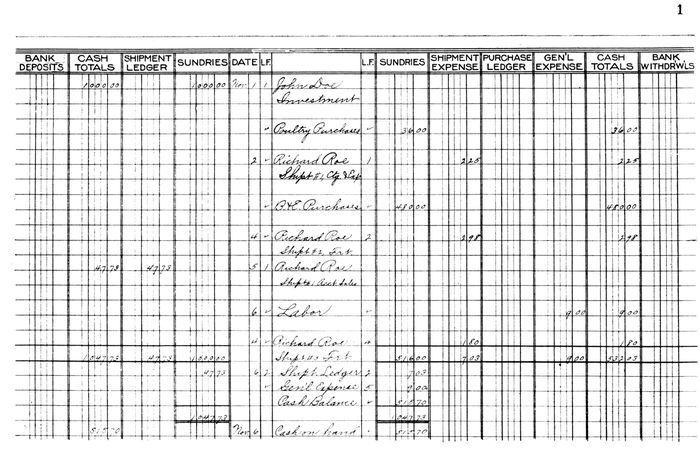 1
BANK DEPOSITS CASH TOTALS SHIPMENT LEDGER SUNDRIES DATE L.F. L.F. SUNDRIES SHIPMENT EXPENSE PURCHASE LEDGER GEN'L EXPENSE CASH TOTALS BANK WITHDRWLS
1000.00 1000.00 Nov. 1 1 John Doe
Investment
" Poultry Purchases " 36.00 36.00
2 " Richard Roe 1 2.25 2.25
Shipt #1, Ctg &
" P.&E. Purchases " 480.00 480.00
4 " Richard Roe 2 2.98 2.98
Shipt #2, Frt.
47.73 47.73 5 1 Richard Roe
Shipt #1 Acct Sales
6 " Labor " 9.00 9.00
4 " Richard Roe " 1.80 1.80
1,047.73 47.73 1,000.00 Shipt Frt 516.00 7.03 9.00 532.03
47.73 6 2 Shipt. Ledger 2 7.03
" Gen'l Expense 5 9.00
Cash Balance " 515.70
1,047.73 1,047.73
515.70 Nov. 6 Cash on hand 515.70